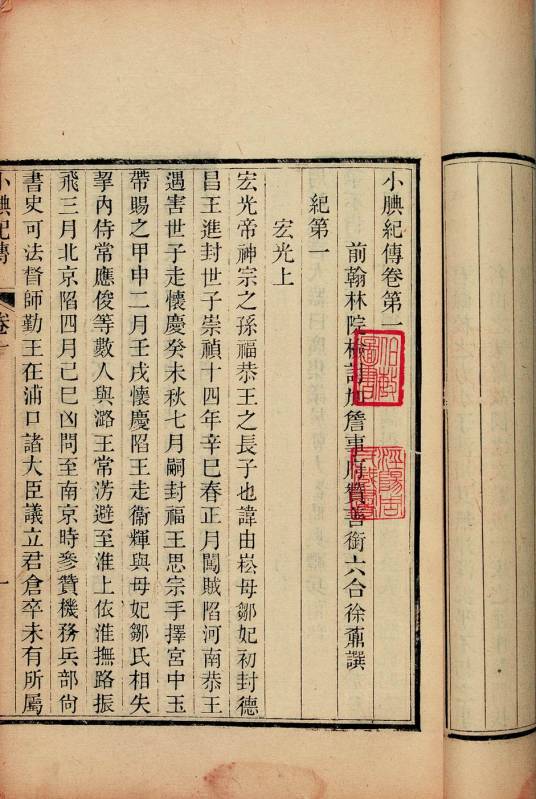 小腆紀傳卷第一
前翰林院檢討加詹事府贊善銜六合徐鼒譔
紀第一
宏光上
宏光帝神宗之孫福恭王之長子也諱由崧母鄒妃初封德
昌王進封世子崇禎十四年辛巳春正月闖賊陷河南恭王
遇害世子走懷慶癸未秋七月嗣封福王思宗手擇宮中玉
帶賜之甲申二月壬戌懷慶陷王走衞輝與母妃鄒氏相失
挈內侍常應俊等數人與潞王常淓避至淮上依淮撫路振
飛三月北京陷四月己巳凶問至南京時參贊機務兵部尙
書史可法督師勤王在浦口諸大臣議立君倉卒未有所屬
小腆紀傳 卷一 一